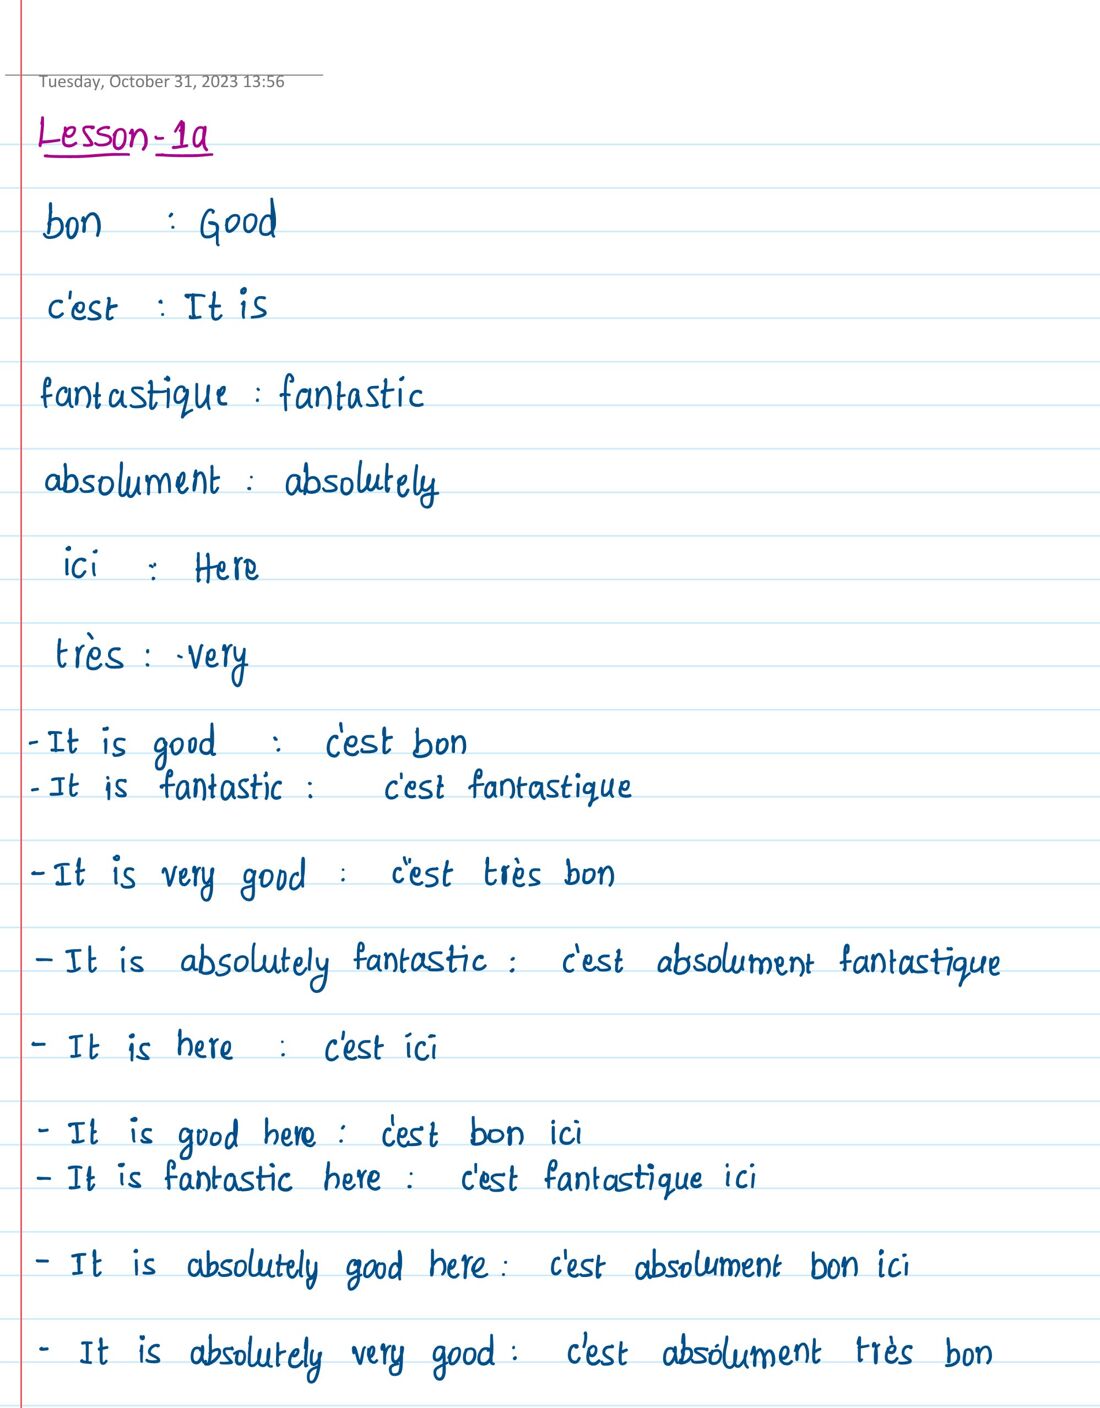 Tuesday, October 31, 2023 13:56
Lesson-1a
bon : Good
c'est : It is
fantastique : fantastic
absolument : absolutely
ici : Here
très : very
- It is good : c'est bon
- It is fantastic : c'est fantastique
- It is very good : c'est très bon
- It is absolutely fantastic : c'est absolument fantastique
- It is here : c'est ici
- It is good here : c'est bon ici
- It is fantastic here : c'est fantastique ici
- It is absolutely good here : c'est absolument bon ici
- It is absolutely very good : c'est absolument très bon